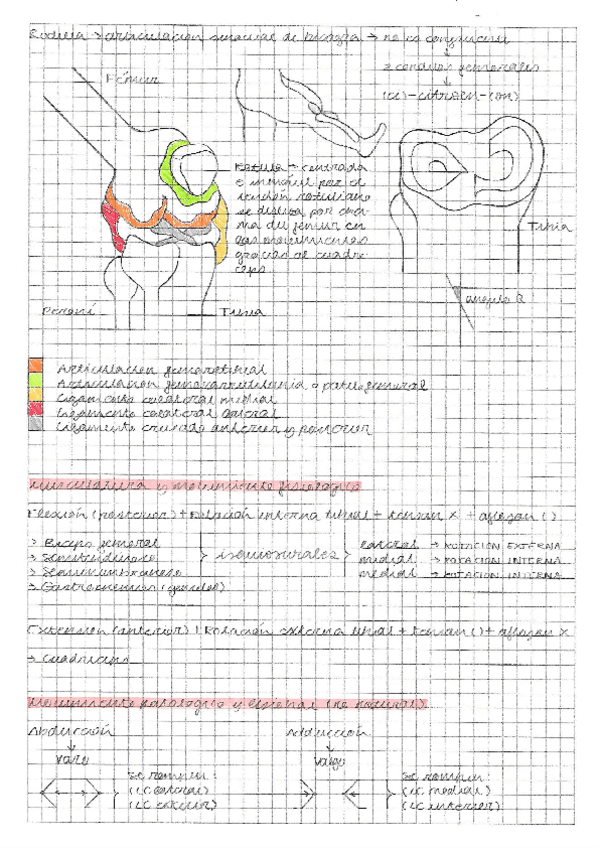 Rodilla → articulación sinovial de bisagra → no es congruente
2 cóndilos femorales
Fémur
Rótula → centrada
e inmóvil por el
tendón rotuliano
se desliza por
del fémur en
los movimientos
gracias al cuádri-
ceps
Tibia
ángulo Q
Peroné
Tibia
Articulación femorotibial
Articulación femororrotuliana o patelofemoral
Ligamento colateral medial
Ligamento colateral lateral
Ligamento cruzado anterior y posterior
Musculatura y movimiento fisiológico
Flexión (posterior) + Rotación interna tibial + tensan X + aflojan ()
> Bíceps femoral
> Semitendinoso
> Semimembranoso
> Gastrocnemios (gemelos)
isquiosurales
lateral → ROTACIÓN EXTERNA
medial → ROTACIÓN INTERNA
medial → ROTACIÓN INTERNA
Extensión (anterior) + Rotación externa tibial + tensan () + aflojan X
> Cuádriceps
Movimiento patológico y lesional (no natural)
Abducción
Varo
Se rompen:
Adducción
Valgo
Se rompen: